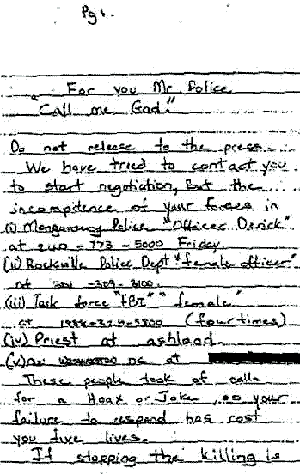 Pg 1.
For you Mr. Police
"Call me God."
Do not release to the press.
We have tried to contact you
to start negotiation, But the
incompitence of your forces in
(i) Montgomery Police "Officer Derick"
at 240-773-5000 Friday
(ii) Rockville Police Dept "female officer"
at 309-
(iii) Task force "FBI" "female"
at (four times)
(iv) Priest at ashland
(v) at
These people took of calls
for a Hoax or Joke, so your
failure to respond has cost
you five lives.
If stopping the killing is